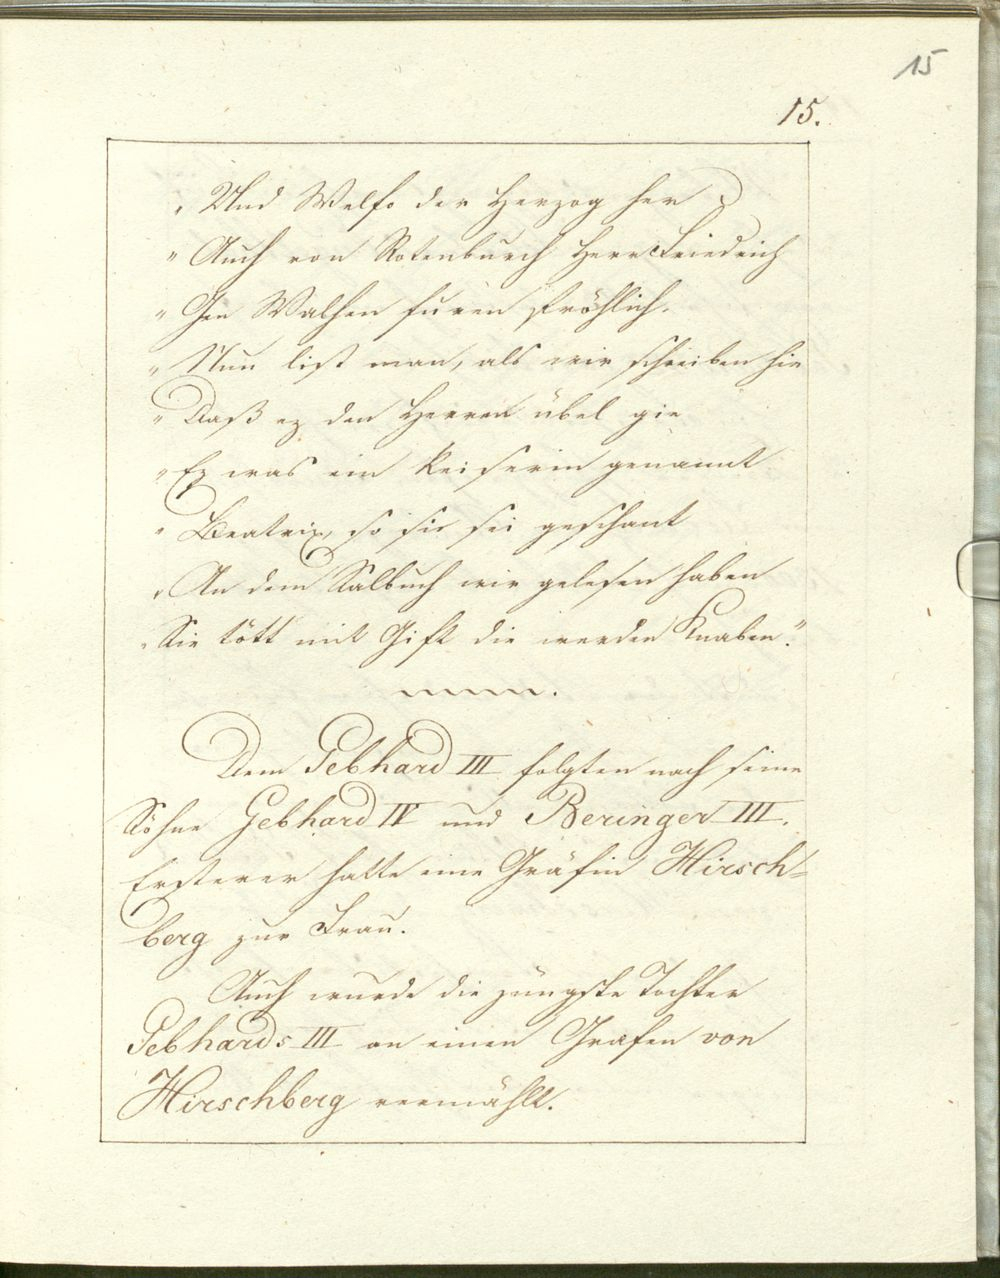 15
15.
„Und Welfo der Herzog her
„Auch von Rotenburch Herr Friedrich
„Gen Walhen furen fröhlich.
„Nun list man, als wir schreiben hie
„Daß ez den Herren übel gie
„Ez was ein Keiserin genannt
„Beatrix, so sie sei geschant
„An dem Salbuch wir gelesen haben
„Sie tött mit Gift die werden Knaben."
Dem Gebhard III folgten nach seine
Söhne Gebhard IV und Beringer III.
Ersterer hatte eine Gräfin Hirsch-
berg zur Frau.
Auch wurde die jüngste Tochter
Gebhards III an einen Grafen von
Hirschberg vermählt.